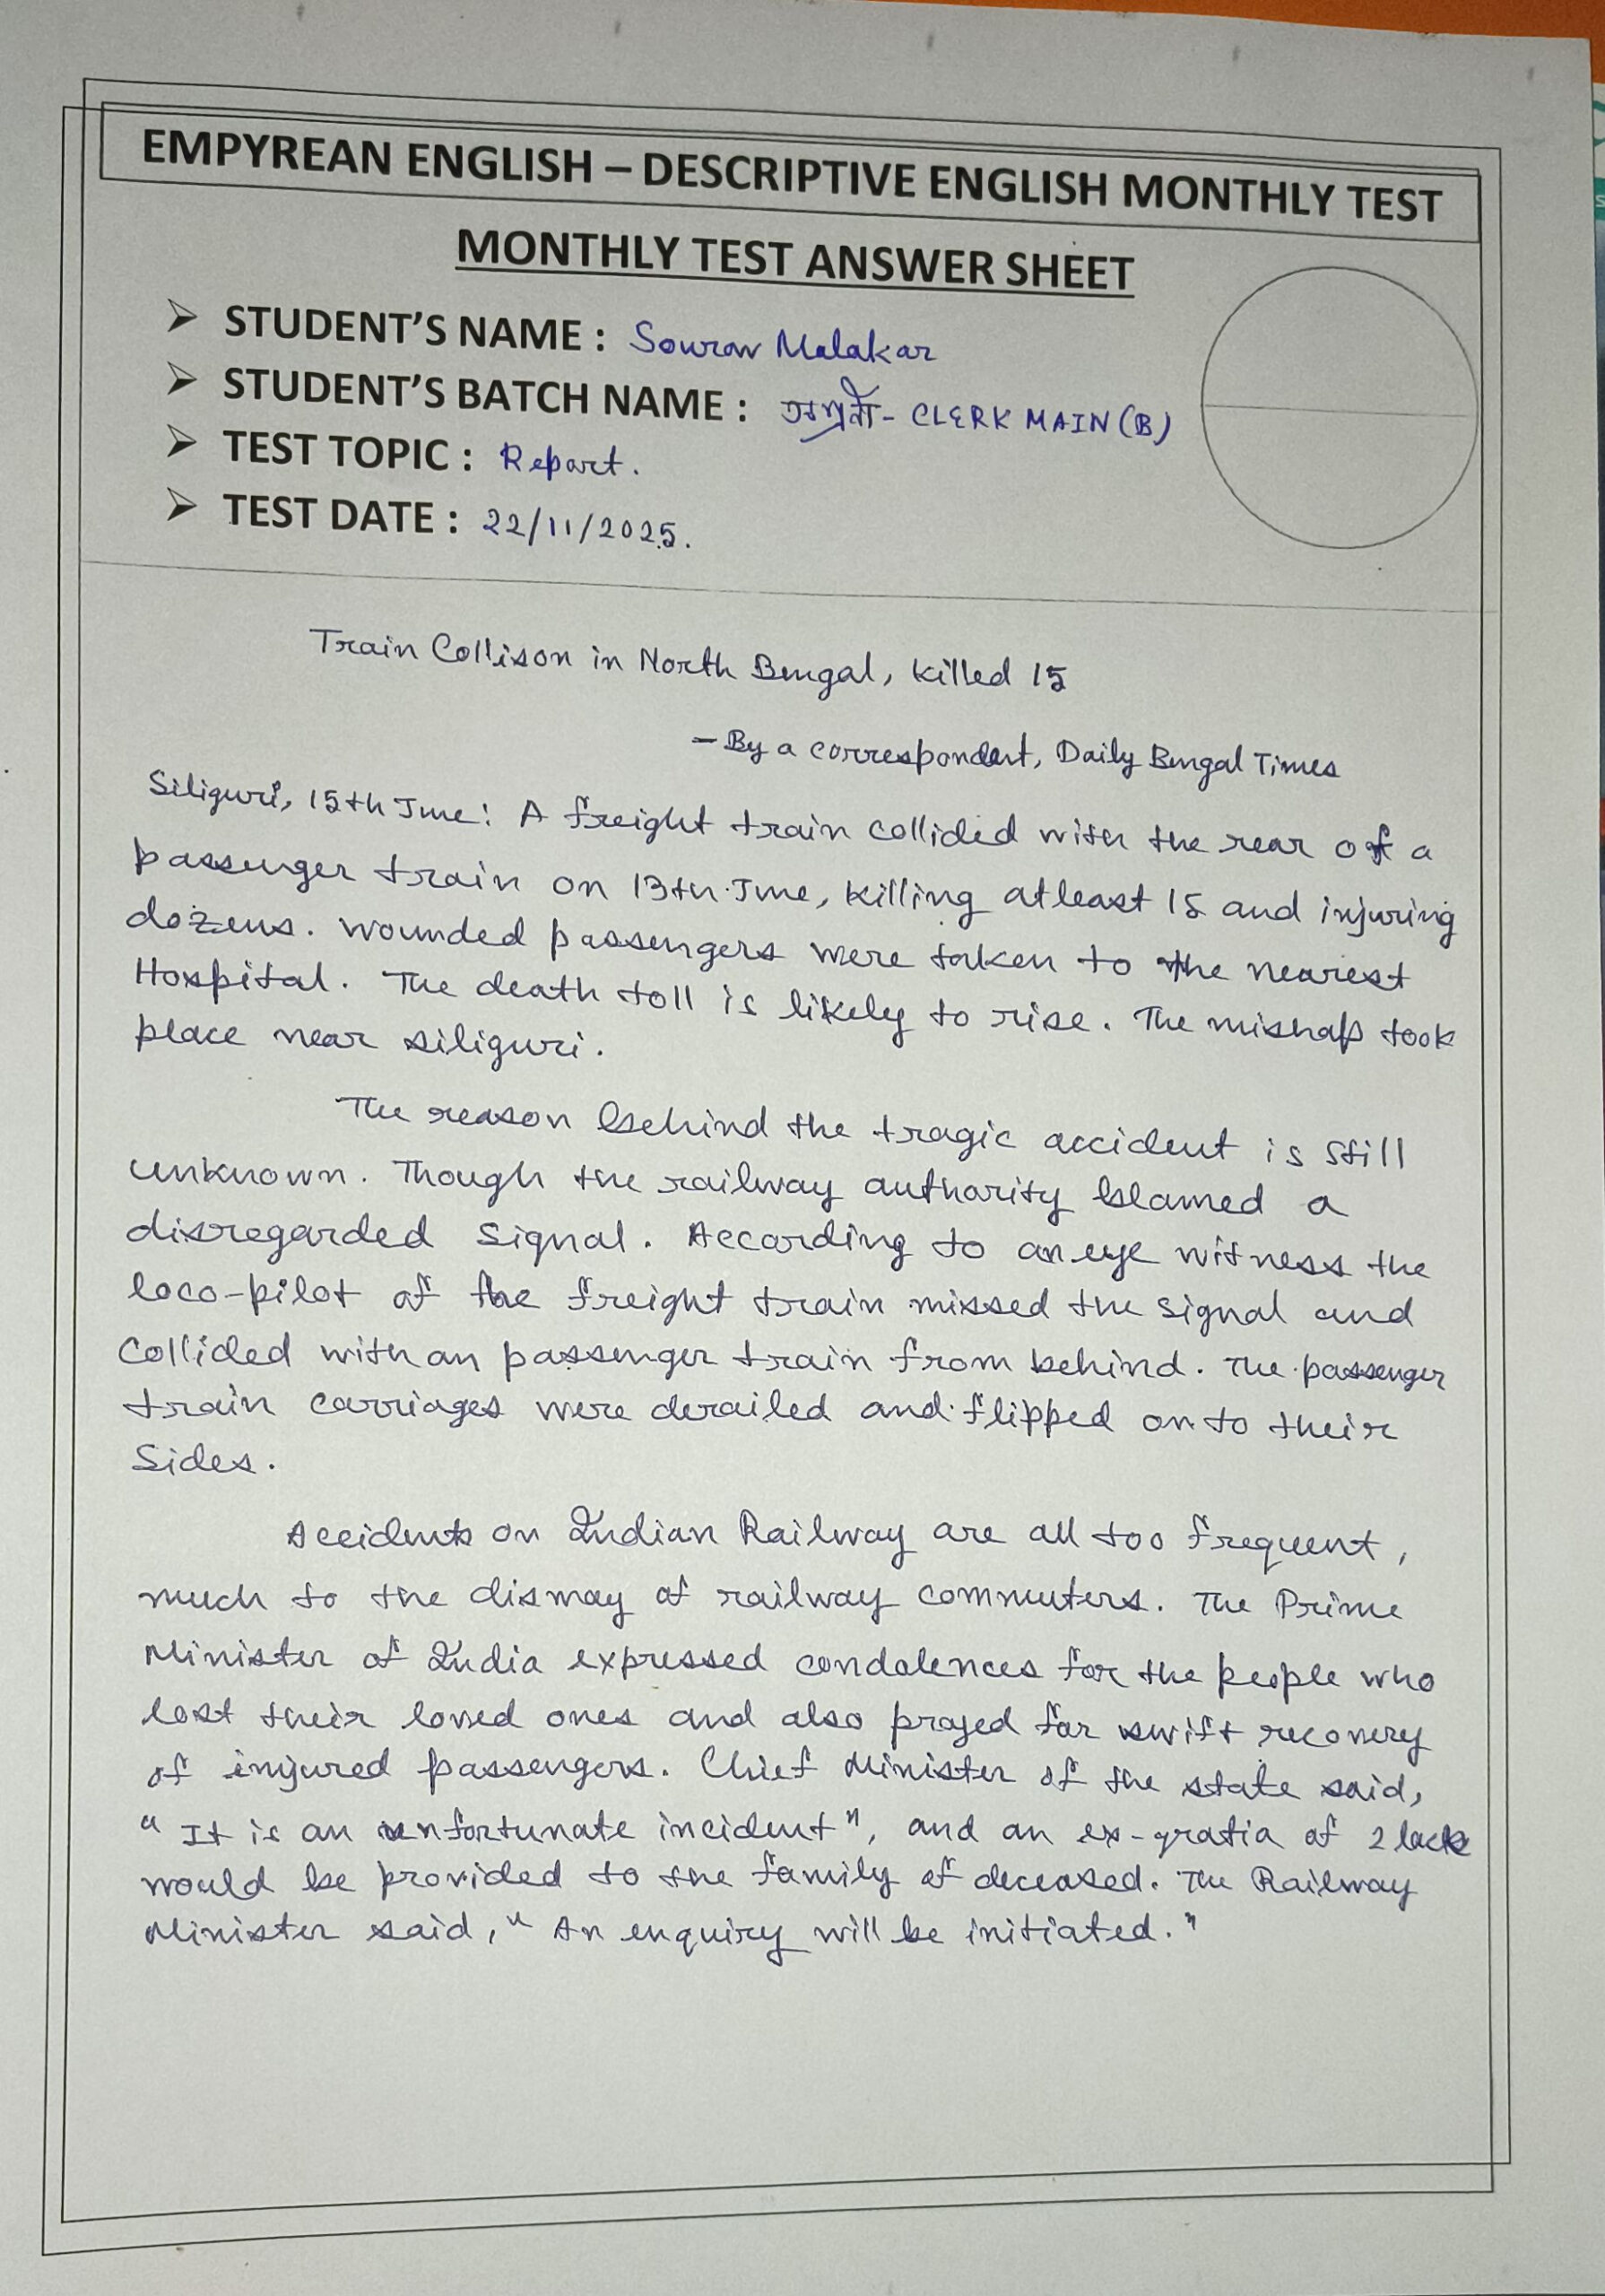 EMPYREAN ENGLISH – DESCRIPTIVE ENGLISH MONTHLY TEST
MONTHLY TEST ANSWER SHEET
➢ STUDENT'S NAME : Sourav Malakar
➢ STUDENT'S BATCH NAME : - CLERK MAIN (B)
➢ TEST TOPIC : Report.
➢ TEST DATE : 22/11/2025.
Train Collison in North Bengal, killed 15
– By a correspondent, Daily Bengal Times
Siliguri, 15th June: A freight train collided with the rear of a
passenger train on 13th June, killing atleast 15 and injuring
dozens. wounded passengers were taken to the nearest
Hospital. The death toll is likely to rise. The mishap took
place near siliguri.
The reason behind the tragic accident is still
unknown. Though the railway authority blamed a
disregarded signal. According to an eye witness the
loco-pilot of the freight train missed the signal and
collided with an passenger train from behind. The passenger
train carriages were derailed and flipped on to their
sides.
Accidents on Indian Railway are all too frequent,
much to the dismay of railway commuters. The Prime
Minister of India expressed condolences for the people who
lost their loved ones and also prayed for swift recovery
of injured passengers. Chief Minister of the state said,
"It is an unfortunate incident", and an ex-gratia of 2 lack
would be provided to the family of deceased. The Railway
Minister said, "An enquiry will be initiated."